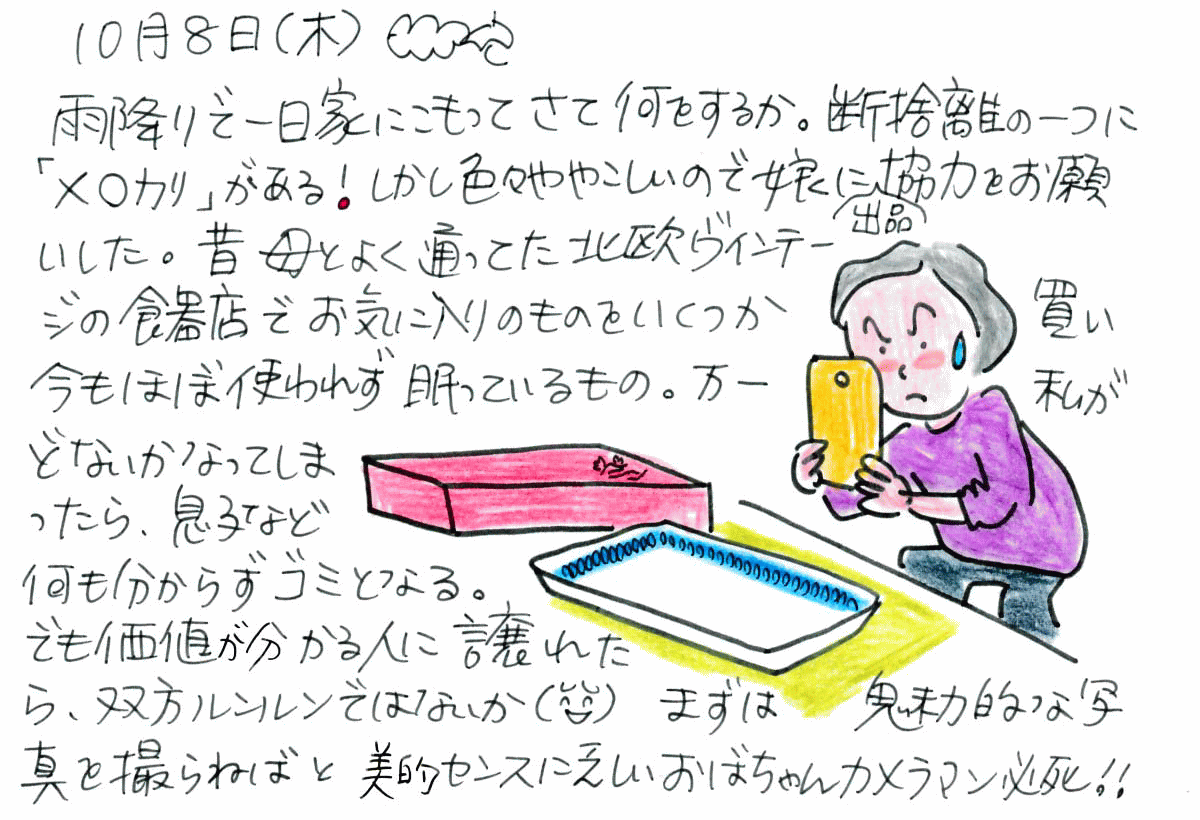 10月8日(木)
雨降りで一日家にこもってさて何をするか。断捨離の一つに
「メ〇カリ」がある!しかし色々ややこしいので嫁に協力をお願
いした。昔母とよく通ってた北欧ヴィンテー
出品
ジの食器店でお気に入りのものをいくつか 買い
今もほぼ使われず眠っているもの。万一 私が
どないかなってしま
ったら、息子など
何も分からずゴミとなる。
でも価値が分かる人に譲れた
ら、双方ルンルンではないか まずは 魅力的な写
真を撮らねばと 美的センスに乏しいおばちゃんカメラマン必死!!